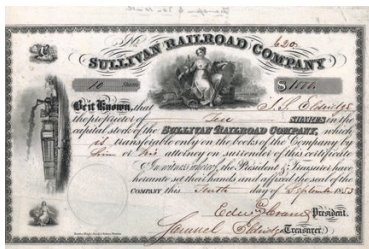 620
SULLIVAN RAILROAD COMPANY
10 Shares $1000
Be it Known, that
the proprietor of Ten SHARES in the
capital stock of the SULLIVAN RAILROAD COMPANY, which
is transferable only on the books of the Company by
him or his attorney on surrender of this certificate
In witness whereof, the President & Treasurer have
hereunto set their hands and affixed the seal of the
COMPANY this Tenth day of September 1853
President.
Samuel Treasurer.